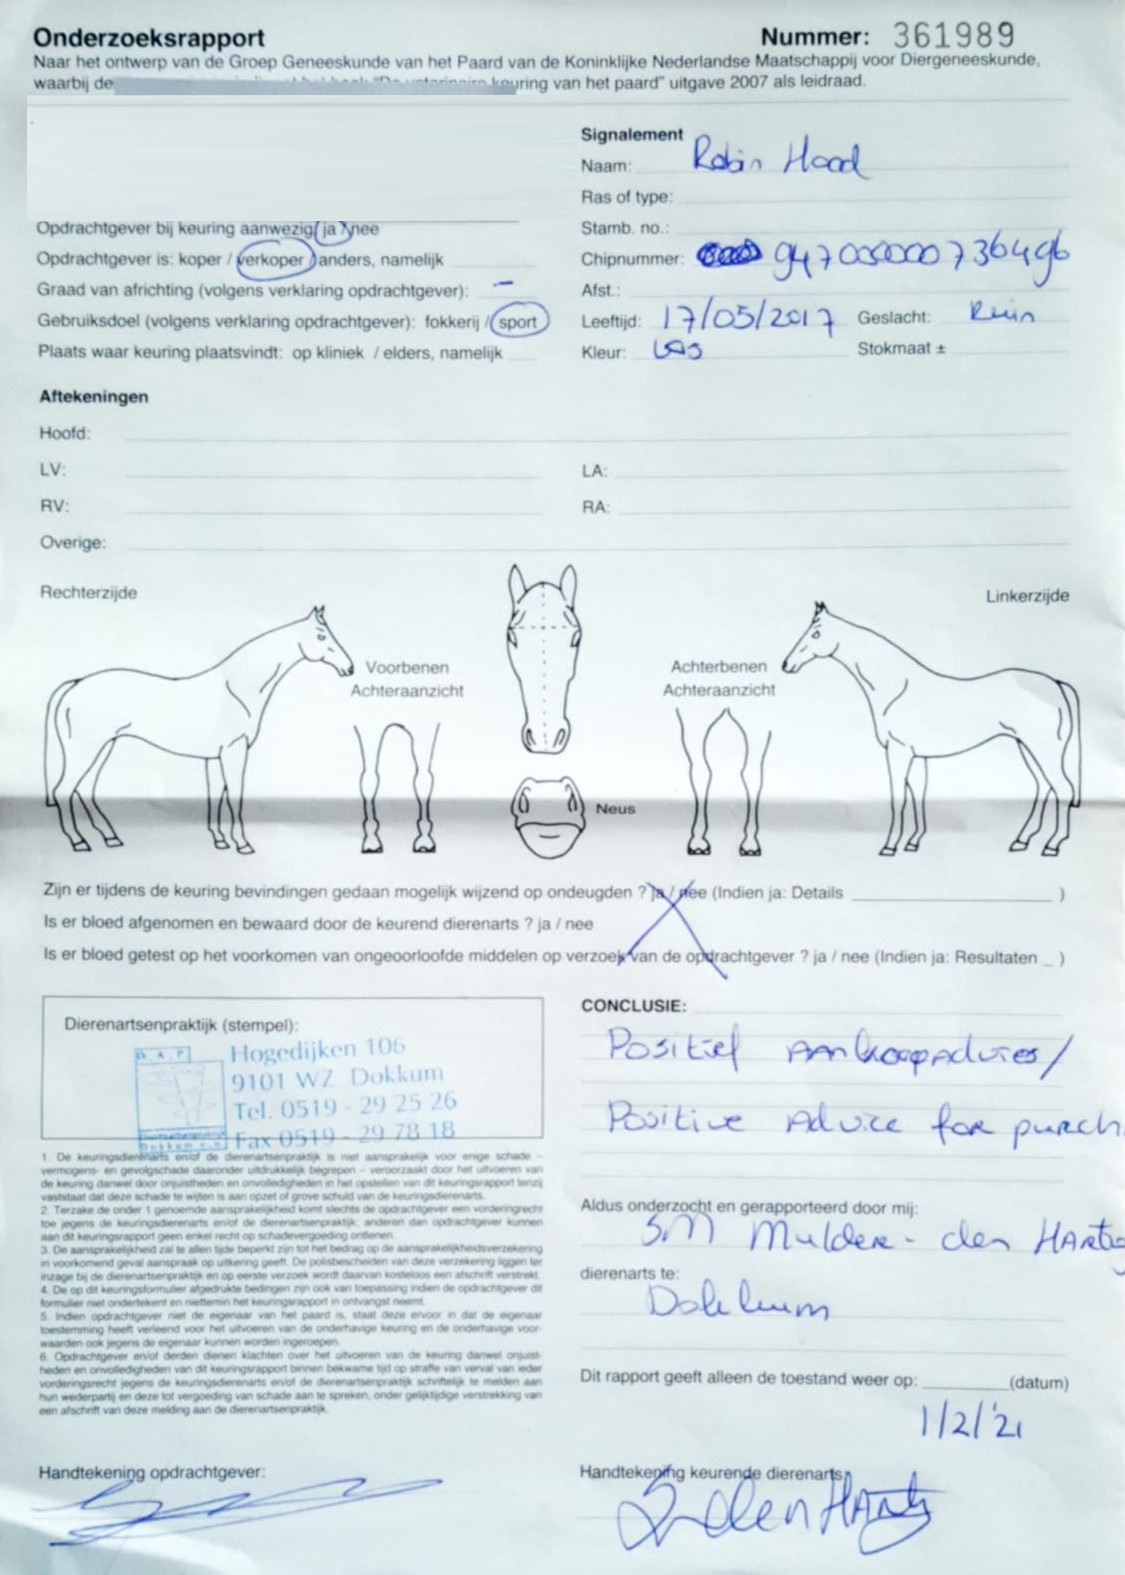 Onderzoeksrapport
Nummer: 361989
Naar het ontwerp van de Groep Geneeskunde van het Paard van de Koninklijke Nederlandse Maatschappij voor Diergeneeskunde,
waarbij de keuring van het paard” uitgave 2007 als leidraad.
Signalement
Naam: Robin Hood
Ras of type:
Opdrachtgever bij keuring aanwezig ja / nee
Stamb. no.:
Opdrachtgever is: koper / verkoper / anders, namelijk
Chipnummer: 947000000736496
Graad van africhting (volgens verklaring opdrachtgever): -
Afst.:
Gebruiksdoel (volgens verklaring opdrachtgever): fokkerij / sport
Leeftijd: 17/05/2017 Geslacht: Ruin
Plaats waar keuring plaatsvindt: op kliniek / elders, namelijk
Kleur: Stokmaat ±
Aftekeningen
Hoofd:
LV: LA:
RV: RA:
Overige:
Rechterzijde
Linkerzijde
Voorbenen
Achteraanzicht
Achterbenen
Achteraanzicht
Neus
Zijn er tijdens de keuring bevindingen gedaan mogelijk wijzend op ondeugden ? ja / nee (Indien ja: Details )
Is er bloed afgenomen en bewaard door de keurend dierenarts ? ja / nee
Is er bloed getest op het voorkomen van ongeoorloofde middelen op verzoek van de opdrachtgever ? ja / nee (Indien ja: Resultaten _ )
Dierenartsenpraktijk (stempel):
D.A.P
Hogedijken 106
9101 WZ Dokkum
Tel. 0519 - 29 25 26
Fax 0519 - 29 78 18
1. De keuringsdierenarts en/of de dierenartsenpraktijk is niet aansprakelijk voor enige schade -
vermogens- en gevolgschade daaronder uitdrukkelijk begrepen - veroorzaakt door het uitvoeren van
de keuring danwel door onjuistheden en onvolledigheden in het opstellen van dit keuringsrapport tenzij
vaststaat dat deze schade te wijten is aan opzet of grove schuld van de keuringsdierenarts.
2. Terzake de onder 1 genoemde aansprakelijkheid komt slechts de opdrachtgever een vorderingrecht
toe jegens de keuringsdierenarts en/of de dierenartsenpraktijk; anderen dan opdrachtgever kunnen
aan dit keuringsrapport geen enkel recht op schadevergoeding ontlenen.
3. De aansprakelijkheid zal te allen tijde beperkt zijn tot het bedrag op de aansprakelijkheidsverzekering
in voorkomend geval aanspraak op uitkering geeft. De polisbescheiden van deze verzekering liggen ter
inzage bij de dierenartsenpraktijk en op eerste verzoek wordt daarvan kosteloos een afschrift verstrekt.
4. De op dit keuringsformulier afgedrukte bedingen zijn ook van toepassing indien de opdrachtgever dit
formulier niet ondertekent en niettemin het keuringsrapport in ontvangst neemt.
5. Indien opdrachtgever niet de eigenaar van het paard is, staat deze ervoor in dat de eigenaar
toestemming heeft verleend voor het uitvoeren van de onderhavige keuring en de onderhavige voor-
waarden ook jegens de eigenaar kunnen worden ingeroepen.
6. Opdrachtgever en/of derden dienen klachten over het uitvoeren van de keuring danwel onjuist-
heden en onvolledigheden van dit keuringsrapport binnen bekwame tijd op straffe van verval van ieder
vorderingsrecht jegens de keuringsdierenarts en/of de dierenartsenpraktijk schriftelijk te melden aan
hun wederpartij en deze tot vergoeding van schade aan te spreken, onder gelijktijdige verstrekking van
een afschrift van deze melding aan de dierenartsenpraktijk.
CONCLUSIE:
Positief aankoopadvies/
Positive Advice for purch
Aldus onderzocht en gerapporteerd door mij:
SM Mulder - den Hartog
dierenarts te:
Dokkum
Dit rapport geeft alleen de toestand weer op: (datum)
1/2/'21
Handtekening opdrachtgever:
Handtekening keurende dierenarts: